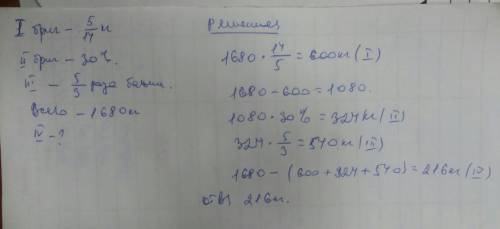 I бриг - 5/14 м
II бриг - 30%.
III - 5/3 раза больш.
Всего - 1680 м
IV - ?
Решение
1680 · 14/5 = 600 м (I)
1680 - 600 = 1080.
1080 · 30% = 324 м (II)
324 · 5/3 = 540 м (III)
1680 - (600 + 324 + 540) = 216 м (IV)
отв: 216 м.